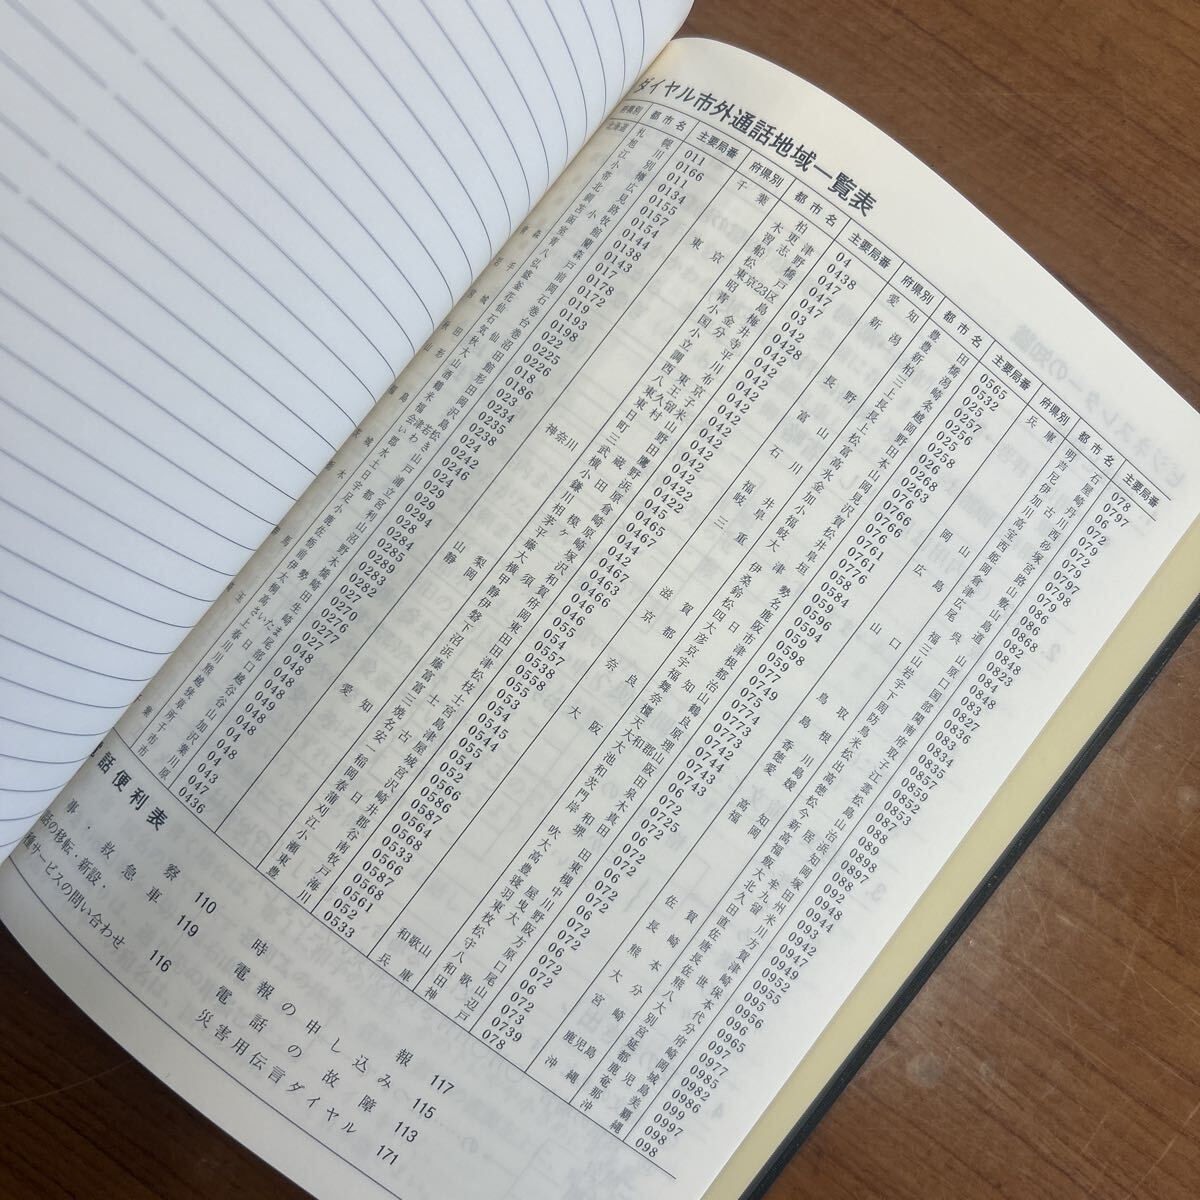 ダイヤル市外通話地域一覧表
府県別 都市名 主要局番 府県別 都市名 主要局番 府県別 都市名 主要局番 府県別 都市名 主要局番
北海道 札幌 011
旭川 0166
江別 011
小樽 0134
帯広 0155
北見 0157
釧路 0154
苫小牧 0144
函館 0138
室蘭 0143
青森 017
八戸 0178
弘前 0172
盛岡 019
釜石 0193
花巻 0198
仙台 022
石巻 0225
沼 0226
秋田 018
大館 0186
山形 023
酒田 0234
鶴岡 0235
米沢 0238
福島 024
会津若松 0242
いわき 0246
郡山 024
水戸 029
土浦 029
日立 0294
宇都宮 028
足利 0284
小山 0285
鹿沼 0289
佐野 0283
栃木 0282
前橋 027
伊勢崎 0270
太田 0276
桐生 0277
高崎 027
さいたま 048
上尾 048
春日部 048
川口 048
川越 049
熊谷 048
狭山 04
所沢 04
草加 048
千葉 043
市川 047
市原 0436
千葉 柏 04
木更津 0438
習志野 047
船橋 047
松戸 047
東京 東京23区 03
昭島 042
青梅 0428
小金井 042
国分寺 042
小平 042
立川 042
調布 042
西東京 042
八王子 042
東久留米 042
東村山 042
日野 042
町田 042
三鷹 0422
武蔵野 0422
神奈川 横浜 045
小田原 0465
鎌倉 0467
川崎 044
相模原 042
茅ヶ崎 0467
平塚 0463
藤沢 0466
大和 046
横須賀 046
山梨 甲府 055
静岡 静岡 054
伊東 0557
磐田 0538
下田 0558
沼津 055
浜松 053
藤枝 054
富士 0545
富士宮 0544
三島 055
焼津 054
愛知 名古屋 052
安城 0566
一宮 0586
稲沢 0587
岡崎 0564
春日井 0568
蒲郡 0533
刈谷 0566
江南 0587
小牧 0568
瀬戸 0561
東海 052
豊川 0533
愛知 豊田 0565
豊橋 0532
新潟 新潟 025
柏崎 0257
三条 0256
上越 025
長岡 0258
長野 長野 026
上田 0268
松本 0263
富山 富山 076
高岡 0766
氷見 0766
石川 金沢 076
加賀 0761
小松 0761
福井 福井 0776
岐阜 岐阜 058
大垣 0584
三重 津 059
伊勢 0596
桑名 0594
鈴鹿 059
松阪 0598
四日市 059
滋賀 大津 077
彦根 0749
京都 京都 075
宇治 0774
福知山 0773
舞鶴 0773
奈良 奈良 0742
橿原 0744
天理 0743
大和郡山 0743
大阪 大阪 06
池田 072
和泉 0725
茨木 072
門真 06
072
岸和田 072
堺 072
吹田 06
大東 072
高槻 072
豊中 06
寝屋川 072
羽曳野 072
東大阪 06
枚方 072
松原 072
守口 06
八尾 072
和歌山 和歌山 073
田辺 0739
兵庫 神戸 078
兵庫 明石 078
芦屋 0797
尼崎 06
伊丹 072
加古川 079
川西 072
高砂 079
宝塚 0797
西宮 0798
姫路 079
岡山 岡山 086
倉敷 086
津山 0868
広島 広島 082
尾道 0848
呉 0823
福山 084
三原 0848
山口 山口 083
岩国 0827
宇部 0836
下関 083
周南 0834
防府 0835
鳥取 鳥取 0857
米子 0859
島根 松江 0852
出雲 0853
香川 高松 087
徳島 徳島 088
愛媛 松山 089
今治 0898
新居浜 0897
高知 高知 088
福岡 福岡 092
飯塚 0948
大牟田 0944
北九州 093
久留米 0942
田川 0947
直方 0949
佐賀 佐賀 0952
唐津 0955
長崎 長崎 095
佐世保 0956
熊本 熊本 096
八代 0965
大分 大分 097
別府 0977
宮崎 宮崎 0985
延岡 0982
都城 0986
鹿児島 鹿児島 099
奄美 0997
沖縄 那覇 098
沖縄 098
話便利表
察 110
事・救急車 119
話の移転・新設・
種サービスの問い合わせ 116
時報 117
電報の申し込み 115
電話の故障 113
災害用伝言ダイヤル 171